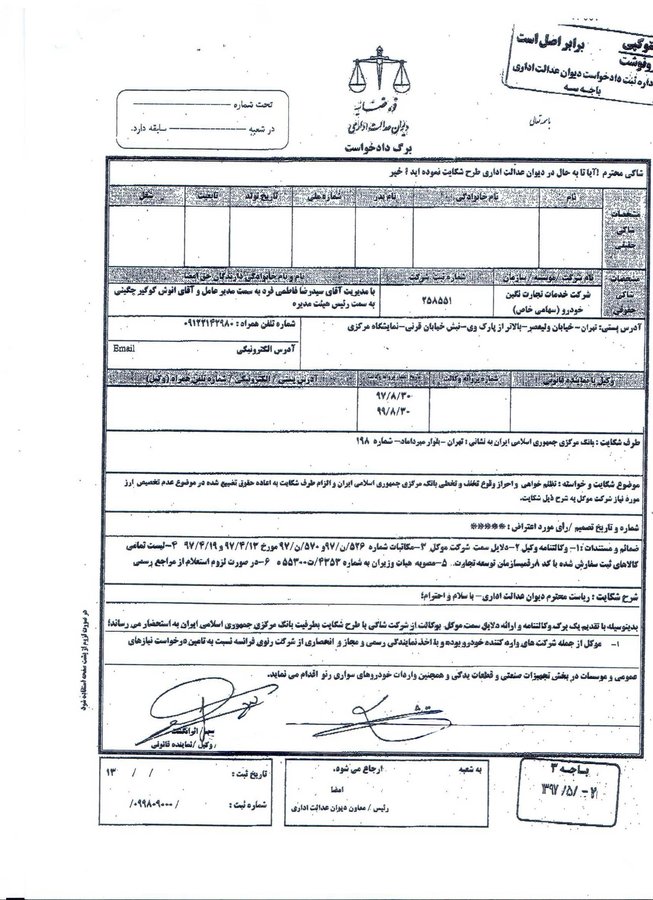 برابر اصل است
رونوشت
اداره ثبت دادخواست دیوان عدالت اداری
باجه سه
باسمه تعالی
قوه قضائیه
دیوان عدالت اداری
برگ دادخواست
تحت شماره
در شعبه سابقه دارد.
شاکی محترم ! آیا تا به حال در دیوان عدالت اداری طرح شکایت نموده اید ؟ خیر
مشخصات شاکی حقیقی
نام نام خانوادگی نام پدر شماره ملی تاریخ تولد تابعیت شغل
مشخصات شاکی حقوقی
نام شرکت / موسسه / سازمان شماره ثبت شرکت نام و نام خانوادگی دارندگان حق امضا
شرکت خدمات تجارت نگین خودرو (سهامی خاص) ۲۵۸۵۵۱ با مدیریت آقای سیدرضا فاطمی فرد به سمت مدیر عامل و آقای انوش گوگیر چگینی
به سمت رئیس هیئت مدیره
آدرس پستی: تهران- خیابان ولیعصر-بالاتر از پارک وی-نبش خیابان قرنی-نمایشگاه مرکزی شماره تلفن همراه : ۰۹۱۲۲۱۴۲۹۸۰
آدرس الکترونیکی Email
وکیل یا نماینده قانونی شماره پروانه وکالت آدرس پستی / الکترونیکی / شماره تلفن همراه (وکیل)
۹۷/۸/۳۰
۹۹/۸/۳۰
طرف شکایت : بانک مرکزی جمهوری اسلامی ایران به نشانی : تهران -بلوار میرداماد- شماره ۱۹۸
موضوع شکایت و خواسته : تظلم خواهی و احراز وقوع تخلف و تخطی بانک مرکزی جمهوری اسلامی ایران و الزام طرف شکایت به اعاده حقوق تضییع شده در موضوع عدم تخصیص ارز
مورد نیاز شرکت موکل به شرح ذیل شکایت.
شماره و تاریخ تصمیم /رأی مورد اعتراض : *****
ضمائم و مستندات :۱- وکالتنامه وکیل ۲-دلایل سمت شرکت موکل ۳-مکاتبات شماره ۵۲۶/ن/۹۷و ۵۷۰/ن/۹۷ مورخ ۹۷/۴/۱۳ و ۹۷/۴/۱۹ ۴-لیست تمامی
کالاهای ثبت سفارش شده با کد ۸رقمیسازمان توسعه تجارت. ۵-مصوبه هیات وزیران به شماره ۴۳۵۳/ت۵۵۳۰۰ ه ۶-در صورت لزوم استعلام از مراجع رسمی
شرح شکایت : ریاست محترم دیوان عدالت اداری- با سلام و احترام؛
بدینوسیله با تقدیم یک برگ وکالتنامه و ارائه دلایل سمت موکل، بوکالت از شرکت شاکی با طرح شکایت بطرفیت بانک مرکزی جمهوری اسلامی ایران به استحضار می رساند؛
۱- موکل از جمله شرکت های وارد کننده خودرو بوده و با اخذ نمایندگی رسمی و مجاز و انحصاری از شرکت رنوی فرانسه نسبت به تامین درخواست نیازهای
عمومی و موسسات در بخش تجهیزات صنعتی و قطعات یدکی و همچنین واردات خودروهای سواری رنو اقدام می نماید.
در صورت لزوم از پشت صفحه استفاده شود
مهر / اثر انگشت
وکیل /نماینده قانونی
باجه ۳
۱۳۹۷/۵/-۲
به شعبه ارجاع می شود.
امضا
رئیس / معاون دیوان عدالت اداری
تاریخ ثبت : / / ۱۳
شماره ثبت : /۰۹۹۸۰۹۰۰۰/